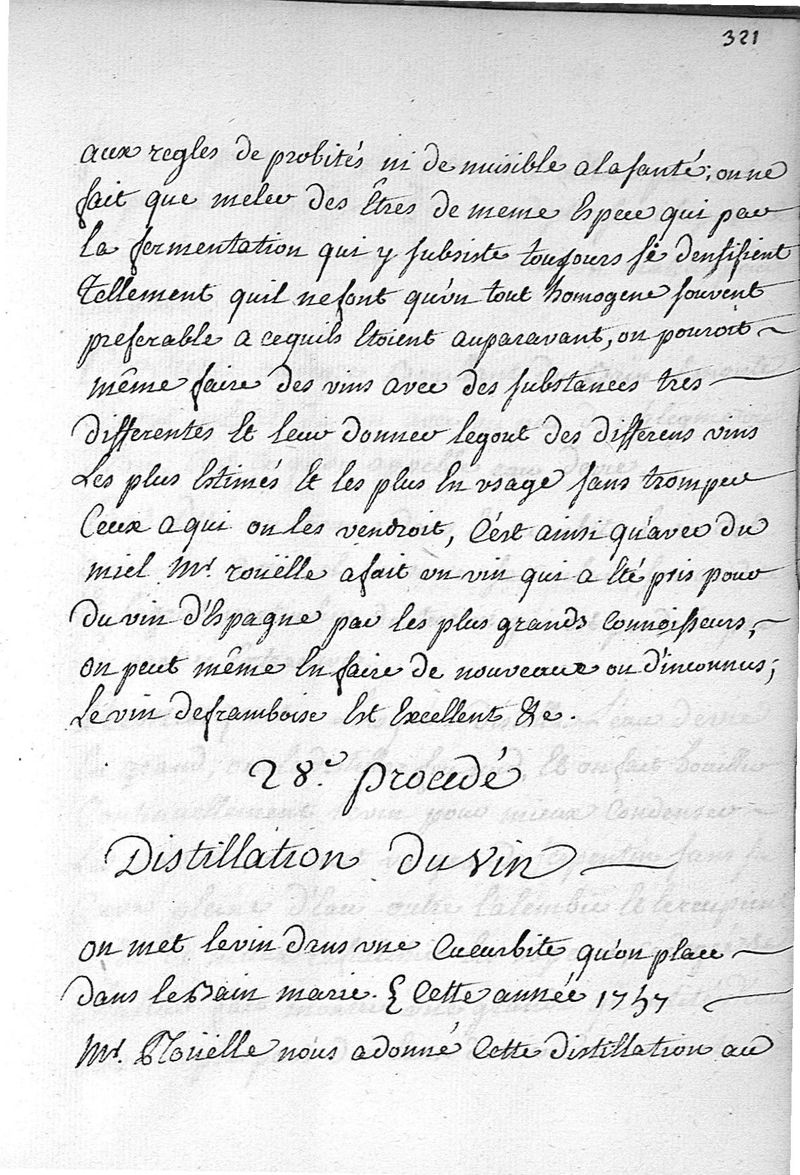 321
aux regles de probités ni de nuisible a la santé; on ne
fait que meler des Êtres de meme Espece qui par
la fermentation qui y subsiste toujours se densifient
Tellement quil ne font qu'un tout homogene souvent
preferable a cequils Etoient auparavant, on pouroit
même faire des vins avec des substances tres
differentes Et leur donner legout des differens vins
Les plus Estimés Et les plus En usage sans tromper
Ceux a qui on les vendroit, C'est ainsi qu'avec du
miel Mr. roüelle a fait un vin qui a Eté pris pour
du vin d'Espagne par les plus grands Connoisseurs,
on peut même En faire de nouveaux ou d'inconnus;
Le vin deframboise Est Excellent &c.
28.e procedé
Distillation du Vin
on met levin dans une Cucurbite qu'on place
dans le Bain marie. { Cette année 1757
Mr. Roüelle nous adonné Cette distillation au